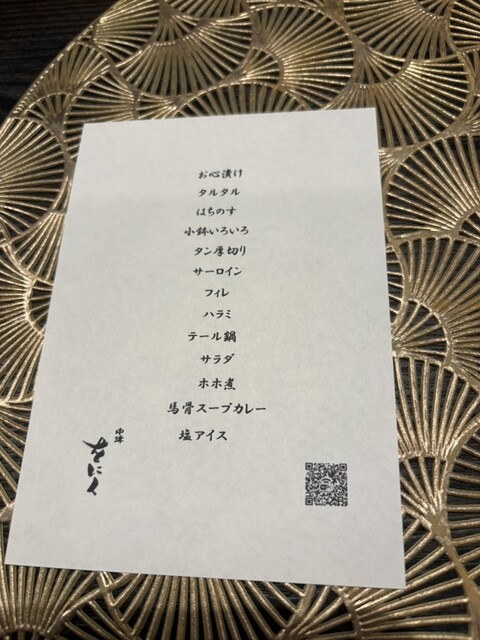 お心漬け
タルタル
はちのす
小鉢いろいろ
タン厚切り
サーロイン
フィレ
ハラミ
テール鍋
サラダ
ホホ煮
馬骨スープカレー
塩アイス
をにく